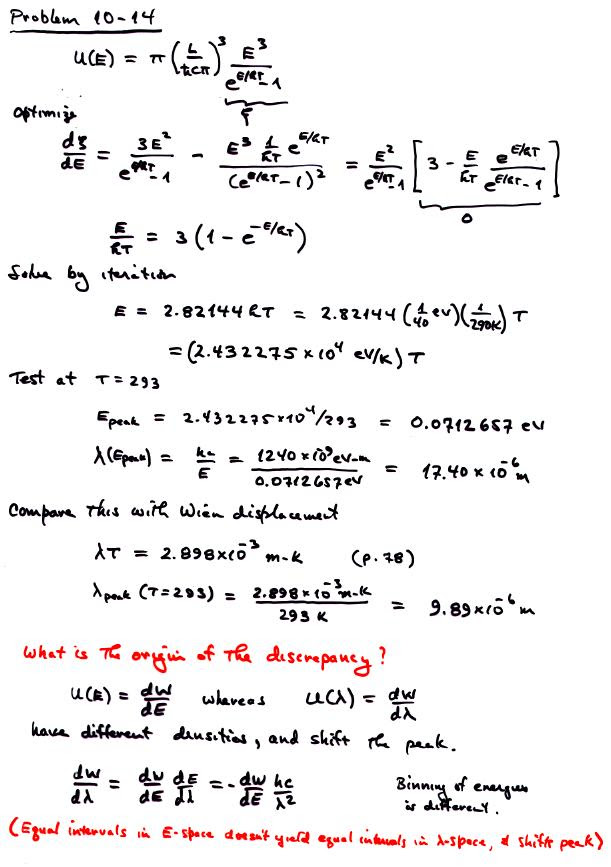 Problem 10-14
U(E) = π (L/ħcπ)³ E³/(e^{E/kT} - 1)
ξ
Optimize
dξ/dE = 3E²/(e^{E/kT} - 1) - E³ (1/kT) e^{E/kT}/(e^{E/kT} - 1)² = E²/(e^{E/kT} - 1) [3 - (E/kT) e^{E/kT}/(e^{E/kT} - 1)]
0
E/kT = 3(1 - e^{-E/kT})
Solve by iteration
E = 2.82144 kT = 2.82144 (1/40 eV)(1/290K) T
= (2.432275 × 10⁴ eV/K) T
Test at T = 293
E_peak = 2.432275×10⁴/293 = 0.0712657 eV
λ(E_peak) = hc/E = 1240 × 10⁹ eV-m/0.0712657 eV = 17.40 × 10⁻⁶ m
Compare this with Wien displacement
λT = 2.898×10⁻³ m-K (p. 78)
λ_peak (T=293) = 2.898 × 10⁻³ m-K/293 K = 9.89×10⁻⁶ m
What is the origin of the discrepancy?
U(E) = dW/dE whereas U(λ) = dW/dλ
have different densities, and shift the peak.
dW/dλ = dW/dE dE/dλ = - dW/dE hc/λ² Binning of energies
is different.
(Equal intervals in E-space doesn't yield equal intervals in λ-space, & shifts peak)